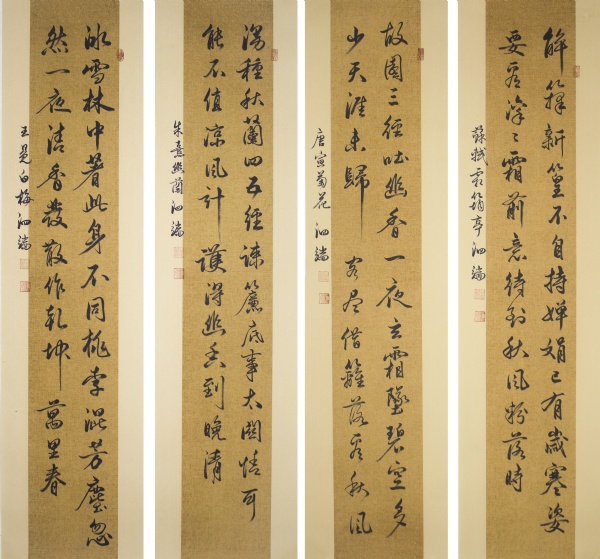 解籜新篁不自持嬋娟已有歲寒姿
要看凜〻霜前意待到秋風粉落時
蘇軾霜筠亭 泗端
故園三徑吐幽香一夜玄霜墜碧空多
少天涯未歸客盡借籬落看秋風
唐寅菊花 泗端
漫種秋蘭四五徑疎簾底事太關情可
能不值涼風計護得幽香到晚清
朱熹幽蘭 泗端
冰雪林中著此身不同桃李混芳塵忽
然一夜清香發散作乾坤萬里春
王冕白梅 泗端